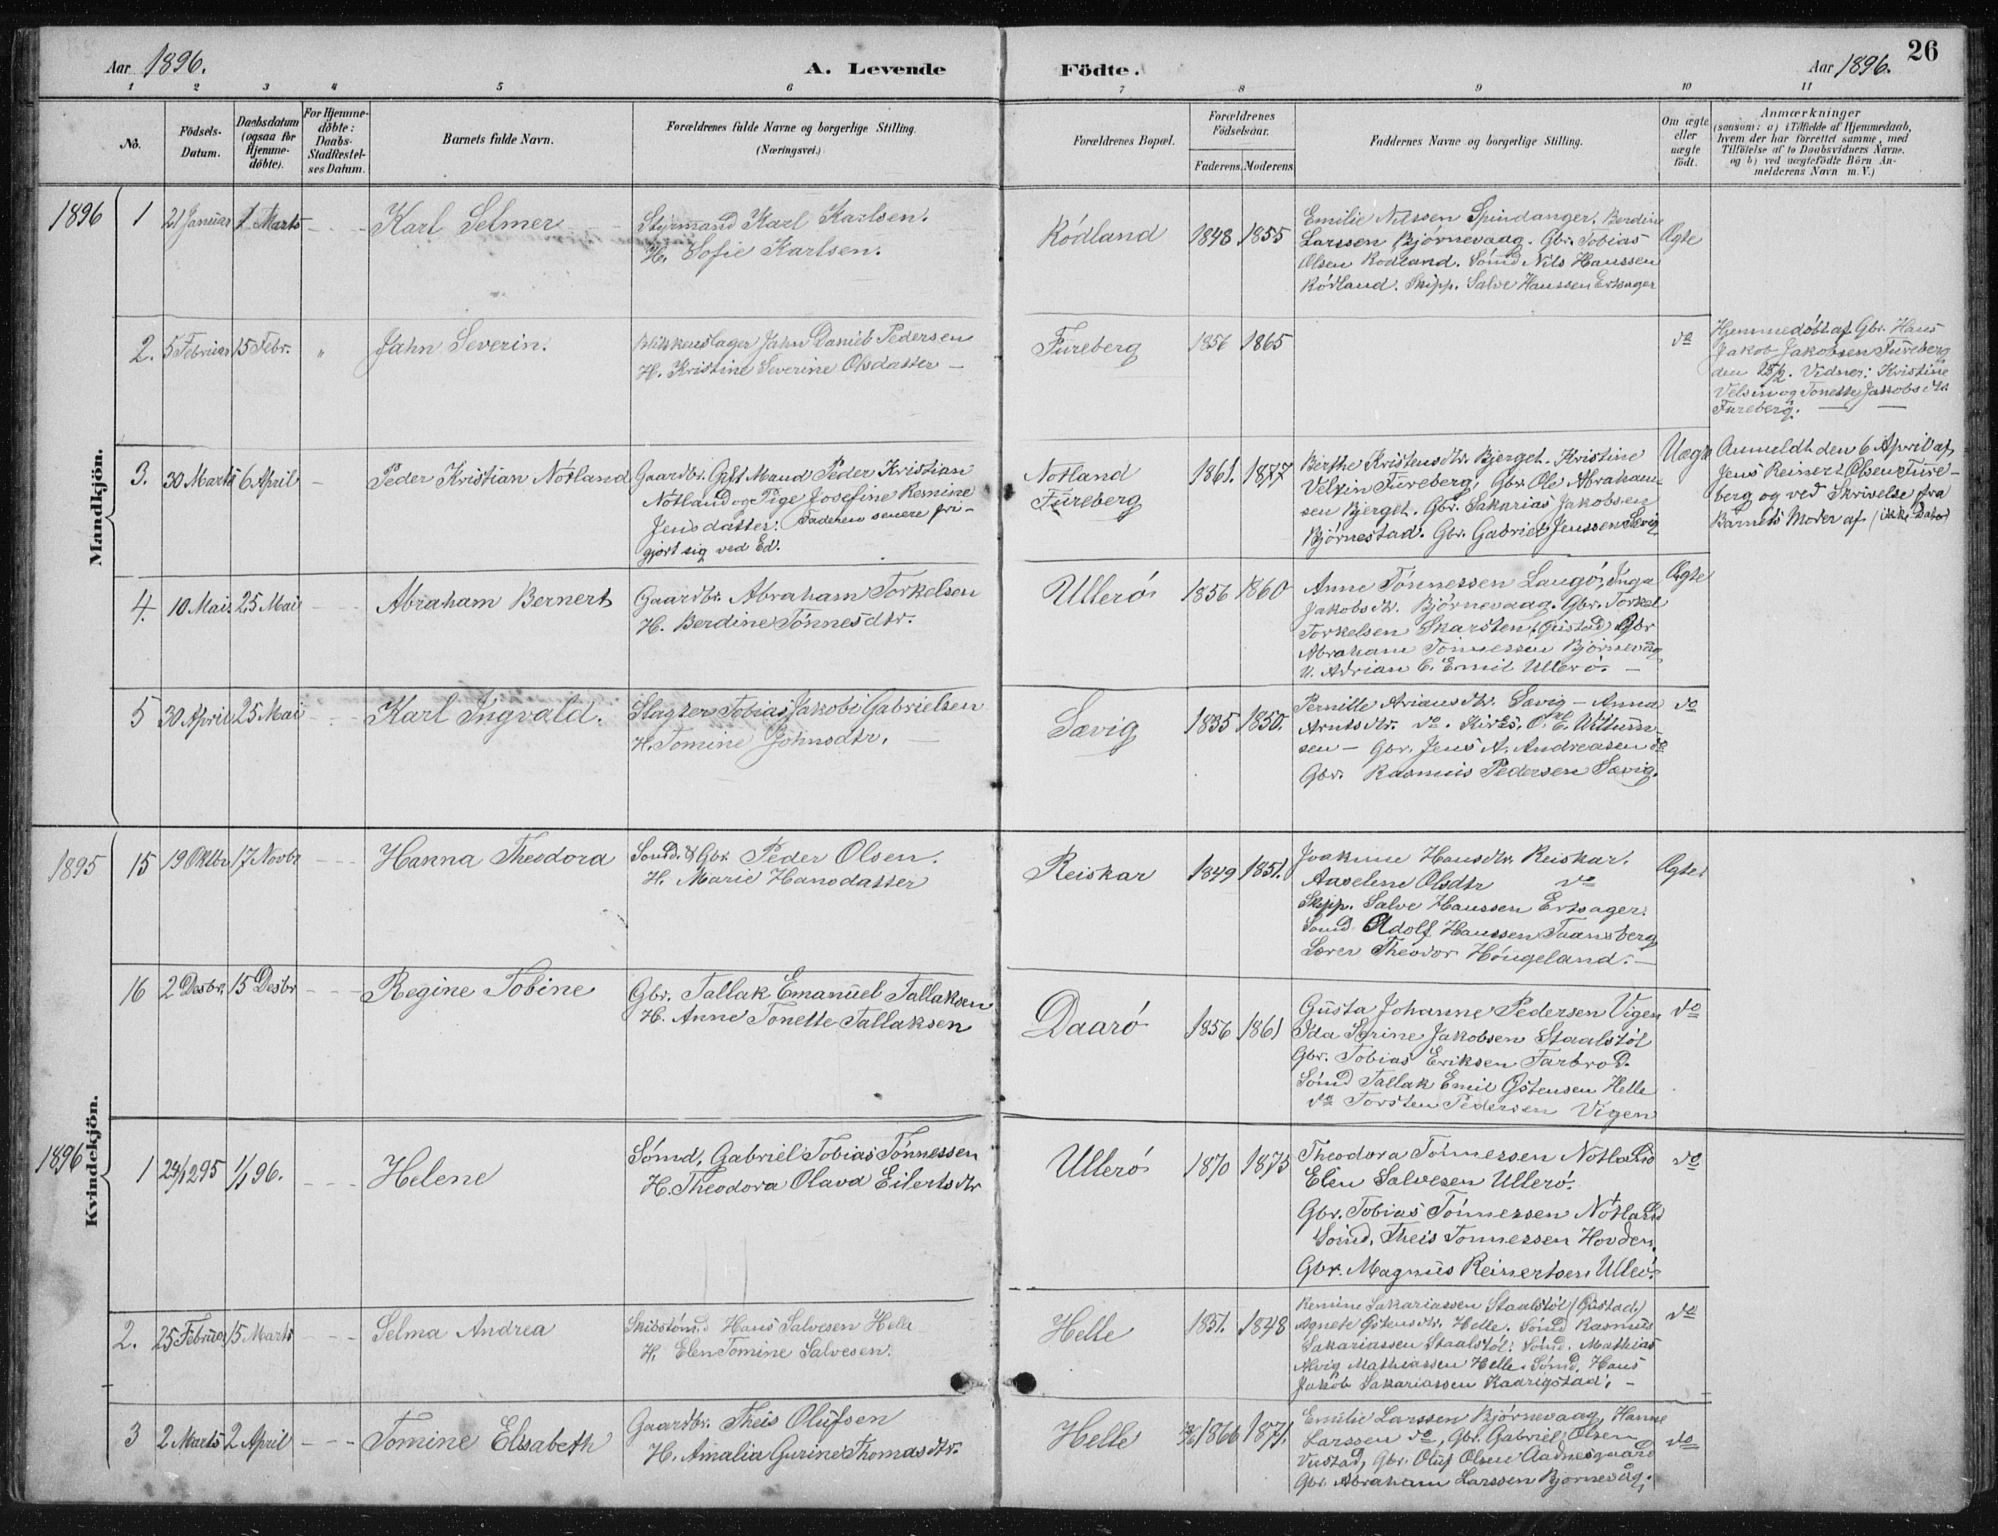 26
Aar 1896. A. Levende Födte. Aar 1896.
1 2 3 4 5 6 7 8 9 10 11
No.
Födsels-Datum.
Daabsdatum (ogsaa for Hjemme-döbte).
For Hjemme-döbte: Daabs-Stadfestel-ses Datum.
Barnets fulde Navn.
Forældrenes fulde Navne og borgerlige Stilling. (Næringsvei.)
Forældrenes Bopæl.
Forældrenes Födselsaar.
Faderens. Moderens.
Faddernes Navne og borgerlige Stilling.
Om ægte eller uægte födt.
Anmærkninger
(saasom: a) i Tilfælde af Hjemmedaab, hvem der har forrettet samme, med Tilföielse af to Daabsvidners Navne. og b) ved uægtefödte Börn An-melderens Navn m. V.)
Mandkjön.
1896 1 21 Januar 1 Marts Karl Selmer
Styrmand Karl Karlsen.
H. Sofie Karlsen.
Rödland 1848 1855
Emilie Nilssen Spindanger. Berdine
Larssen Bjørnevaag. Gbr. Tobias
Olsen Rödland. Sömd Nils Hanssen
Rödland. Skipp. Salve Hanssen Ersager
Ægte
2. 5 Februar 15 Febr. " Jahn Severin.
Jahn Daniel Pedersen
H. Kristine Severine Olsdatter —
Fureberg 1856 1865 do
Hjemmedöbt af Gbr. Hans
Jakob Jakobsen Fureberg
den 15/2. Vidner: Kristine
og Tonette Jakobsdtr.
Fureberg. —
3. 30 Marts 6 April - Peder Kristian Nötland
Gaardbr. Gift Mand Peder Kristian
Nötland og Pige Josefine Remine
Jensdatter. Faderen senere fri-
gjort sig ved Ed.
Nötland
Fureberg
1861. 1877
Berthe Kristensdtr. Bjerget. Kristine
Fureberg, Gbr. Ole Abraham-
sen Bjerget. Gbr. Sakarias Jakobsen
Bjørnestad. Gbr. Gabriel Jenssen Sævig
Uægte
Anmeldt den 6 April af
Jens Reinert Olsen Fure-
berg og ved Skrivelse fra
Barnets Moder af (ikke Dato)
4. 10 Mai 25 Mai Abraham Bernert
Gaardbr. Abraham Torkelsen
H. Berdine Tönnesdtr.
Ullerö 1856 1860
Anne Tönnessen Langö, Inga
Jakobsdtr. Bjørnevaag. Gbr. Torkel
Torkelsen Skarsten (Gustad) Gbr
Abraham Tönnessen Bjørnevåg
U. Adrian E. Emil Ullerö. —
Ægte
5 30 April 25 Mai Karl Ingvald.
Slagter Tobias Jakob Gabrielsen
H. Tomine Johnsdtr. —
Sævig 1835 1850.
Pernille Ariansdtr. Sævig — Anna
Arntsdtr. do.
sen — Gbr. Jens A. Andreasen do
Gbr. Rasmus Pedersen Sævig.
do
Kvindekjön.
1895 15 19 Oktbr 17 Novbr Hanna Theodora
Sömd. & Gbr. Peder Olsen.
H. Marie Hansdatter
Reiskar 1849 1851.
Joakime Hansdtr. Reiskar.
Aaselene Olsdtr do
Skipp. Salve Hanssen Ersager.
Sömd Adolf Hanssen Taansberg
Sören Theodor Höugeland. —
Ægte
16 2 Desbr. 15 Desbr Regine Tobine
Gbr. Tallak Emanuel Tallaksen
H. Anne Tonette Tallaksen
Daarö 1856 1861
Gusta Johanne Pedersen Vigen
Ida Serine Jakobsen Staalstöl
Gbr. Tobias Eriksen Farbrod.
Sömd Tallak Emil Östensen Helle
do Torsten Pedersen Vigen
do
1896 1 29/12 95 1/1 96. Helene
Sömd. Gabriel Tobias Tönnessen
H. Theodora Olava Eilertsdtr
Ullerö 1870 1875
Theodora Tönnessen Nötland
Elen Salvesen Ullerö.
Gbr. Tobias Tönnessen Nötland
Sömd. Theis Tönnessen Hovden.
Gbr. Magnus Reinertsen Ullerö.
do
2. 25 Februar 15 Marts Selma Andrea
Skibstömd Hans Salvesen Helle
H. Elen Tomine Salvesen.
Helle 1851. 1848
Remine Sakariassen Staalstöl (Gustad)
Agnete Östensdtr. Helle. Sömd Rasmus
Sakariassen Staalstöl. Sömd. Mathias
Alvig Mathiassen Helle. Sömd. Hans
Jakob Sakariassen Kaarigstad. —
do
3 2 Marts 2 April Tomine Elisabeth
Gaardbr. Theis Olufsen
H. Amalia Gurine Thomasdtr.
Helle 1866 1871.
Emilie Larssen Bjørnevaag, Hanne
Larssen do, Gbr. Gabriel Olsen
Gbr. Oluf Olsen Aadnesgaard
Gbr. Abraham Larssen Bjørnevåg.
do